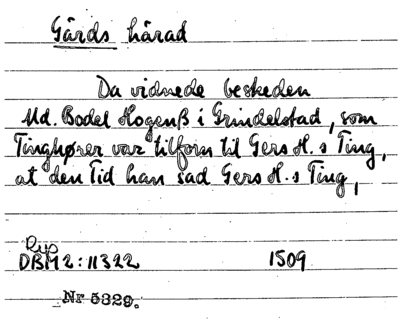 Gärds härad
Da vidnede beskeden
Md. Bodel Hogenß i Grindelstad, som
Tinghører var tilforn til Gers H.s Ting,
at den Tid han sad Gers H.s Ting,
Rep
DBM 2:11322 1509
Nr 5329.